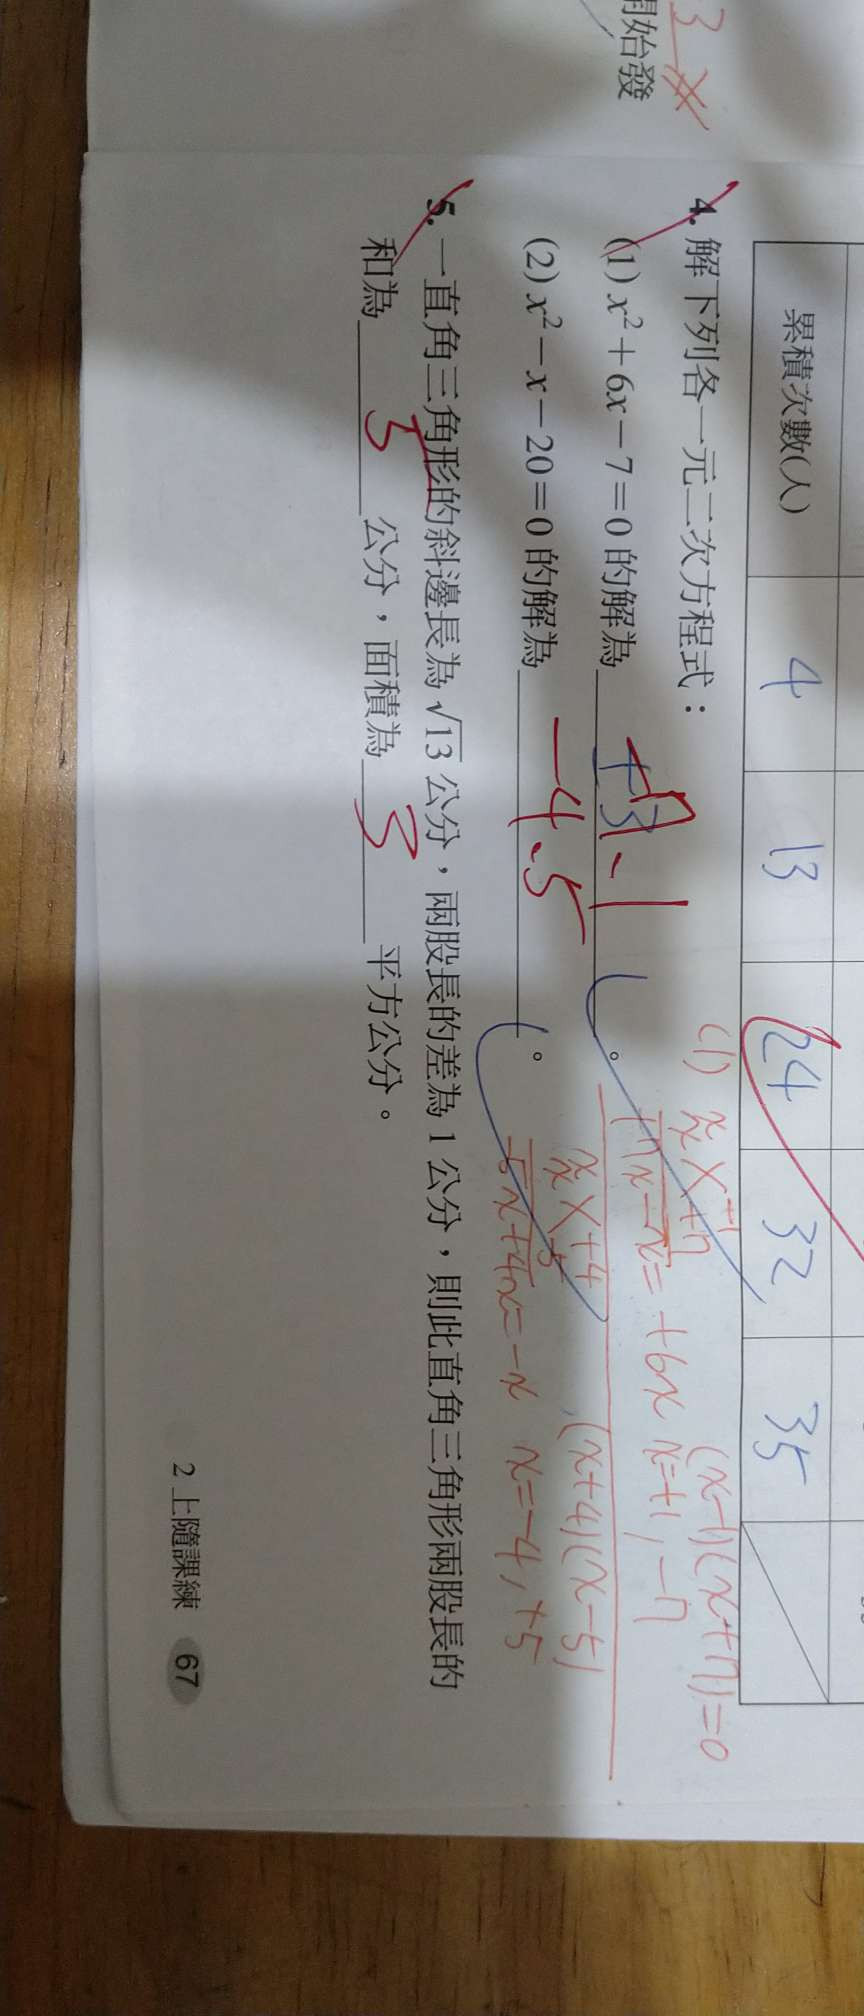 3
開始發
累積次數(人) 4 13 24 32 35
4. 解下列各一元二次方程式：
(1) x²+6x−7=0 的解為 −7、1 。
(1) x -1
x +7
(x-1)(x+7)=0
+7x-x=+6x x=+1,-7
(2) x²−x−20=0 的解為 -4、5 。
x +4
x -5
(x+4)(x-5)
-5x+4x=-x x=-4,+5
5. 一直角三角形的斜邊長為 √13 公分，兩股長的差為 1 公分，則此直角三角形兩股長的
和為 5 公分，面積為 3 平方公分。
2 上隨課練 67